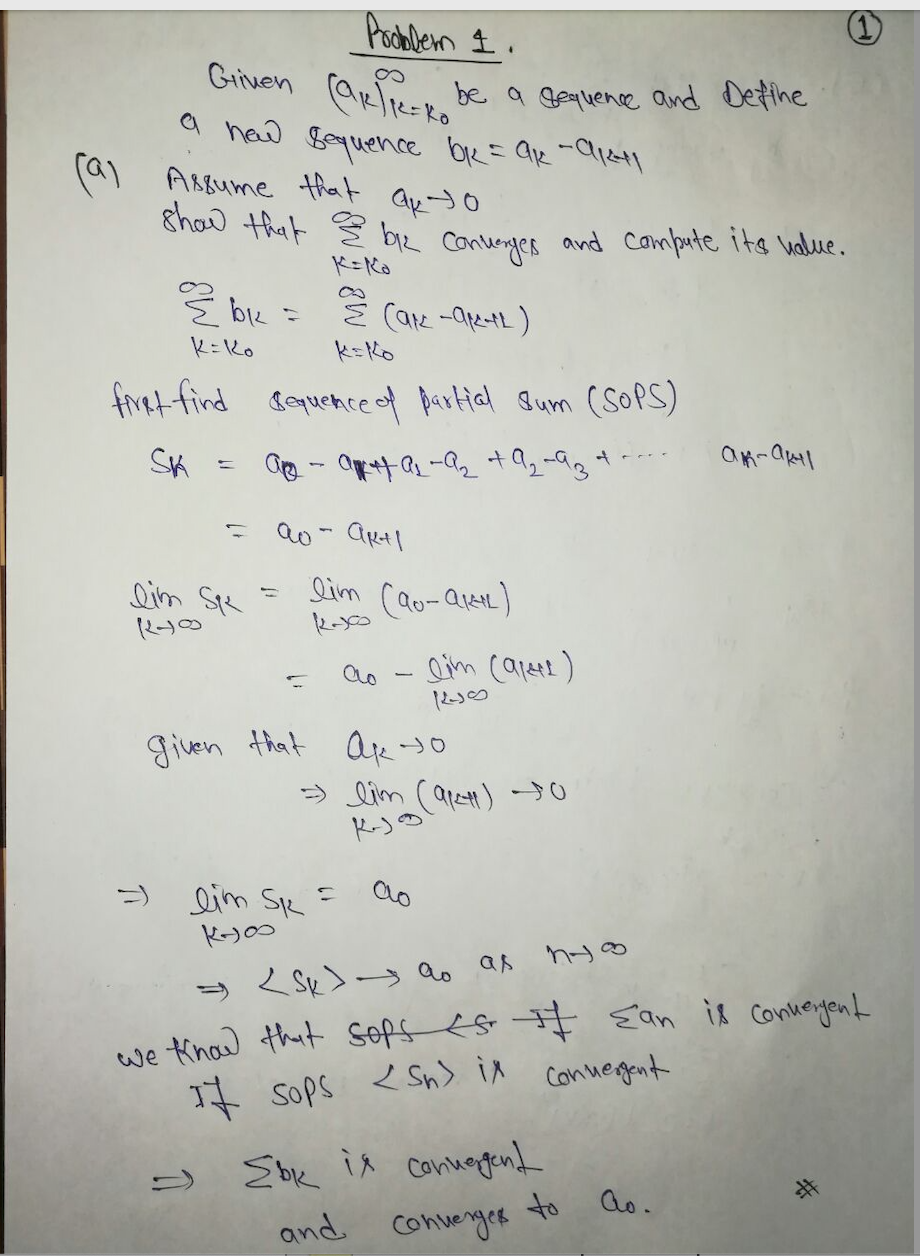 Problem 1.
①
Given (ak)∞k=k0 be a sequence and Define
a new sequence bk = ak - ak+1
(a) Assume that ak → 0
show that ∞Σk=k0 bk converges and compute its value.
∞Σk=k0 bk = ∞Σk=k0 (ak - ak+1)
first find sequence of partial sum (SOPS)
Sk = a0 - a1 + a1 - a2 + a2 - a3 + ---- ak - ak+1
= a0 - ak+1
lim k→∞ Sk = lim k→∞ (a0 - ak+1)
= a0 - lim k→∞ (ak+1)
given that ak → 0
⇒ lim k→∞ (ak+1) → 0
⇒ lim k→∞ Sk = a0
⇒ <Sk> → a0 as n→∞
we know that Σan is convergent
If SOPS <Sn> is convergent
⇒ Σbk is convergent
and converges to a0.